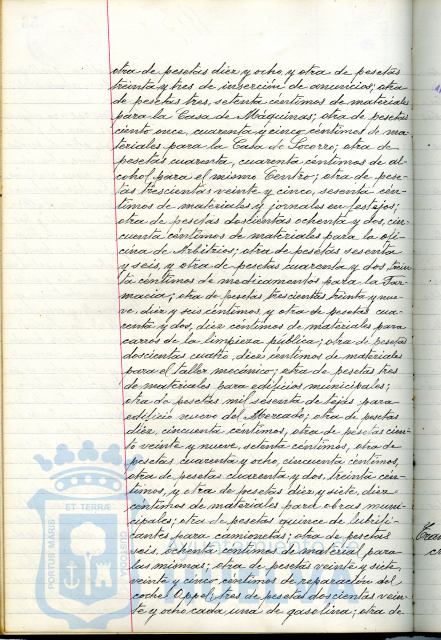 otra de pesetas diez y ocho, y otra de pesetas
treinta y tres de inserción de anuncios; otra
de pesetas tres, setenta céntimos de materiales
para la Casa de Máquinas; otra de pesetas
ciento once, cuarenta y cinco céntimos de ma-
teriales para la Casa de Socorro; otra de
pesetas cuarenta, cuarenta céntimos de al-
cohol para el mismo Centro; otra de pese-
tas trescientas veinte y cinco, sesenta cén-
timos de materiales y jornales en festejos;
otra de pesetas doscientas ochenta y dos, cin-
cuenta céntimos de materiales para la ofi-
cina de Arbitrios; otra de pesetas sesenta
y seis, y otra de pesetas cuarenta y dos, trein-
ta céntimos de medicamentos para la Far-
macia; otra de pesetas trescientas treinta y nue-
ve, diez y seis céntimos, y otra de pesetas cua-
renta y dos, diez céntimos de materiales para
carros de la limpieza pública; otra de pesetas
doscientas cuatro, diez céntimos de materiales
para el taller mecánico; otra de pesetas tres
de materiales para edificios municipales;
otra de pesetas mil sesenta de tejas para
edificio nuevo del Mercado; otra de pesetas
diez, cincuenta céntimos, otra de pesetas cien-
to veinte y nueve, setenta céntimos, otra de
pesetas cuarenta y ocho, cincuenta céntimos,
otra de pesetas cuarenta y dos, treinta cén-
timos, y otra de pesetas diez y siete, diez
céntimos de materiales para obras muni-
cipales; otra de pesetas quince de lubrifi-
cantes para camionetas; otra de pesetas
seis, ochenta céntimos de material para
las mismas; otra de pesetas veinte y siete,
veinte y cinco céntimos de reparación del
coche Oppel; tres de pesetas doscientas vein-
te y ocho cada una de gasolina; otra de
PORTUS MARIS
ET TERRÆ
CUSTODIA